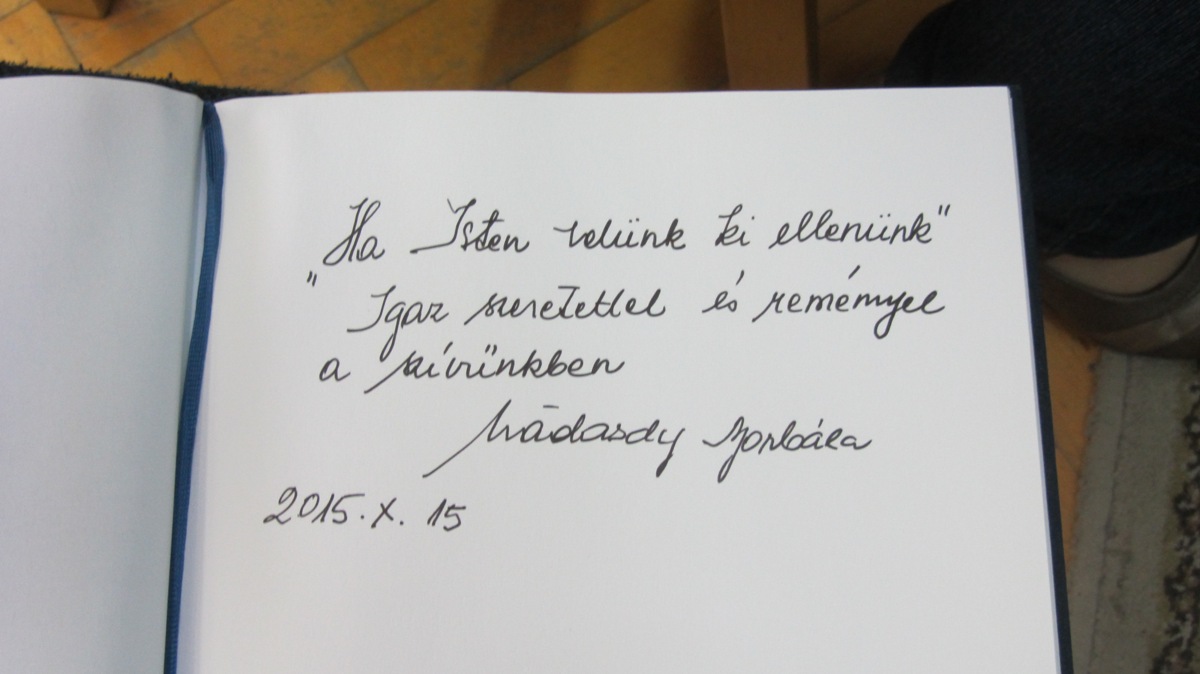 „Ha Isten velünk ki ellenünk"
Igaz szeretettel és reményel
a szívünkben
Nádasdy Borbála
2015. X. 15